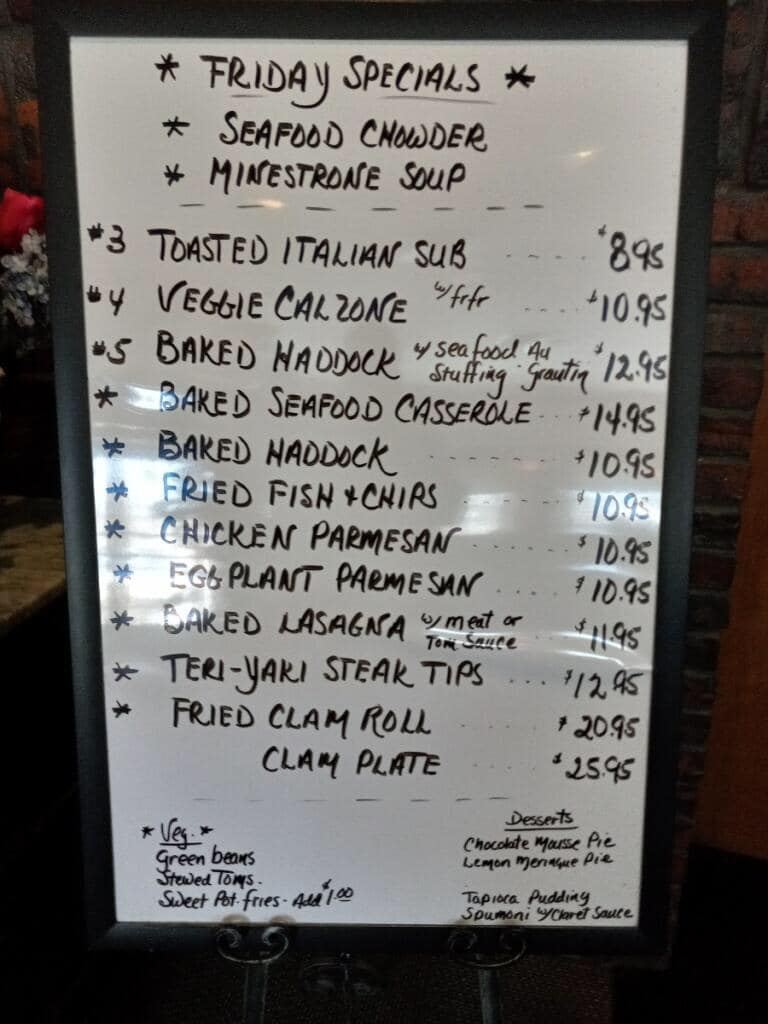 * FRIDAY SPECIALS *
* SEAFOOD CHOWDER
* MINESTRONE SOUP
#3 TOASTED ITALIAN SUB $8.95
#4 VEGGIE CALZONE w/frfr $10.95
#5 BAKED HADDOCK w/ seafood Au $12.95
Stuffing grautin
* BAKED SEAFOOD CASSEROLE $14.95
* BAKED HADDOCK $10.95
* FRIED FISH + CHIPS $10.95
* CHICKEN PARMESAN $10.95
* EGGPLANT PARMESAN $10.95
* BAKED LASAGNA w/ meat or $11.95
Tom Sauce
* TERI-YAKI STEAK TIPS $12.95
* FRIED CLAM ROLL $20.95
CLAM PLATE $25.95
* Veg. *
Green beans
Stewed Toms.
Sweet Pot. fries - Add $1.00
Desserts
Chocolate Mousse Pie
Lemon Meringue Pie
Tapioca Pudding
Spumoni w/Claret Sauce